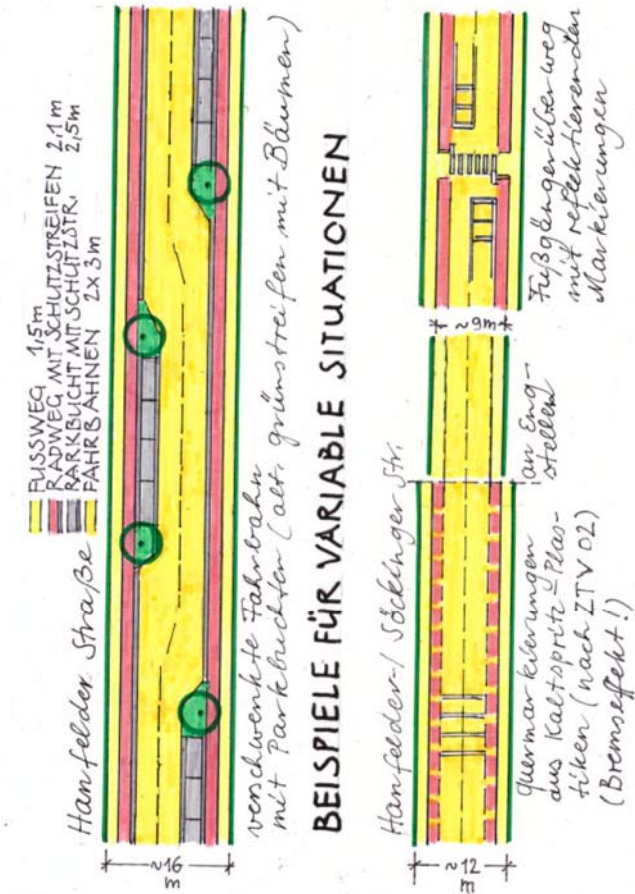 Hanfelder Straße
FUSSWEG 1,5m
RADWEG MIT SCHUTZSTREIFEN 2.1 m
PARKBUCHT MIT SCHUTZSTR. 2,5m
FAHRBAHNEN 2x3m
~16 m
verschwenkte Fahrbahn
mit Parkbuchten (alt. grünstreifen mit Bäumen)
BEISPIELE FÜR VARIABLE SITUATIONEN
Hanfelder-/ Söckinger Str.
~12 m
~9m
quermarkierungen
aus Kaltspritz-Plas-
tiken (nach ZTV 02)
(Bremseffekt!)
an Eng-
stellen
Fußgängerüberweg
mit reflektierenden
Markierungen